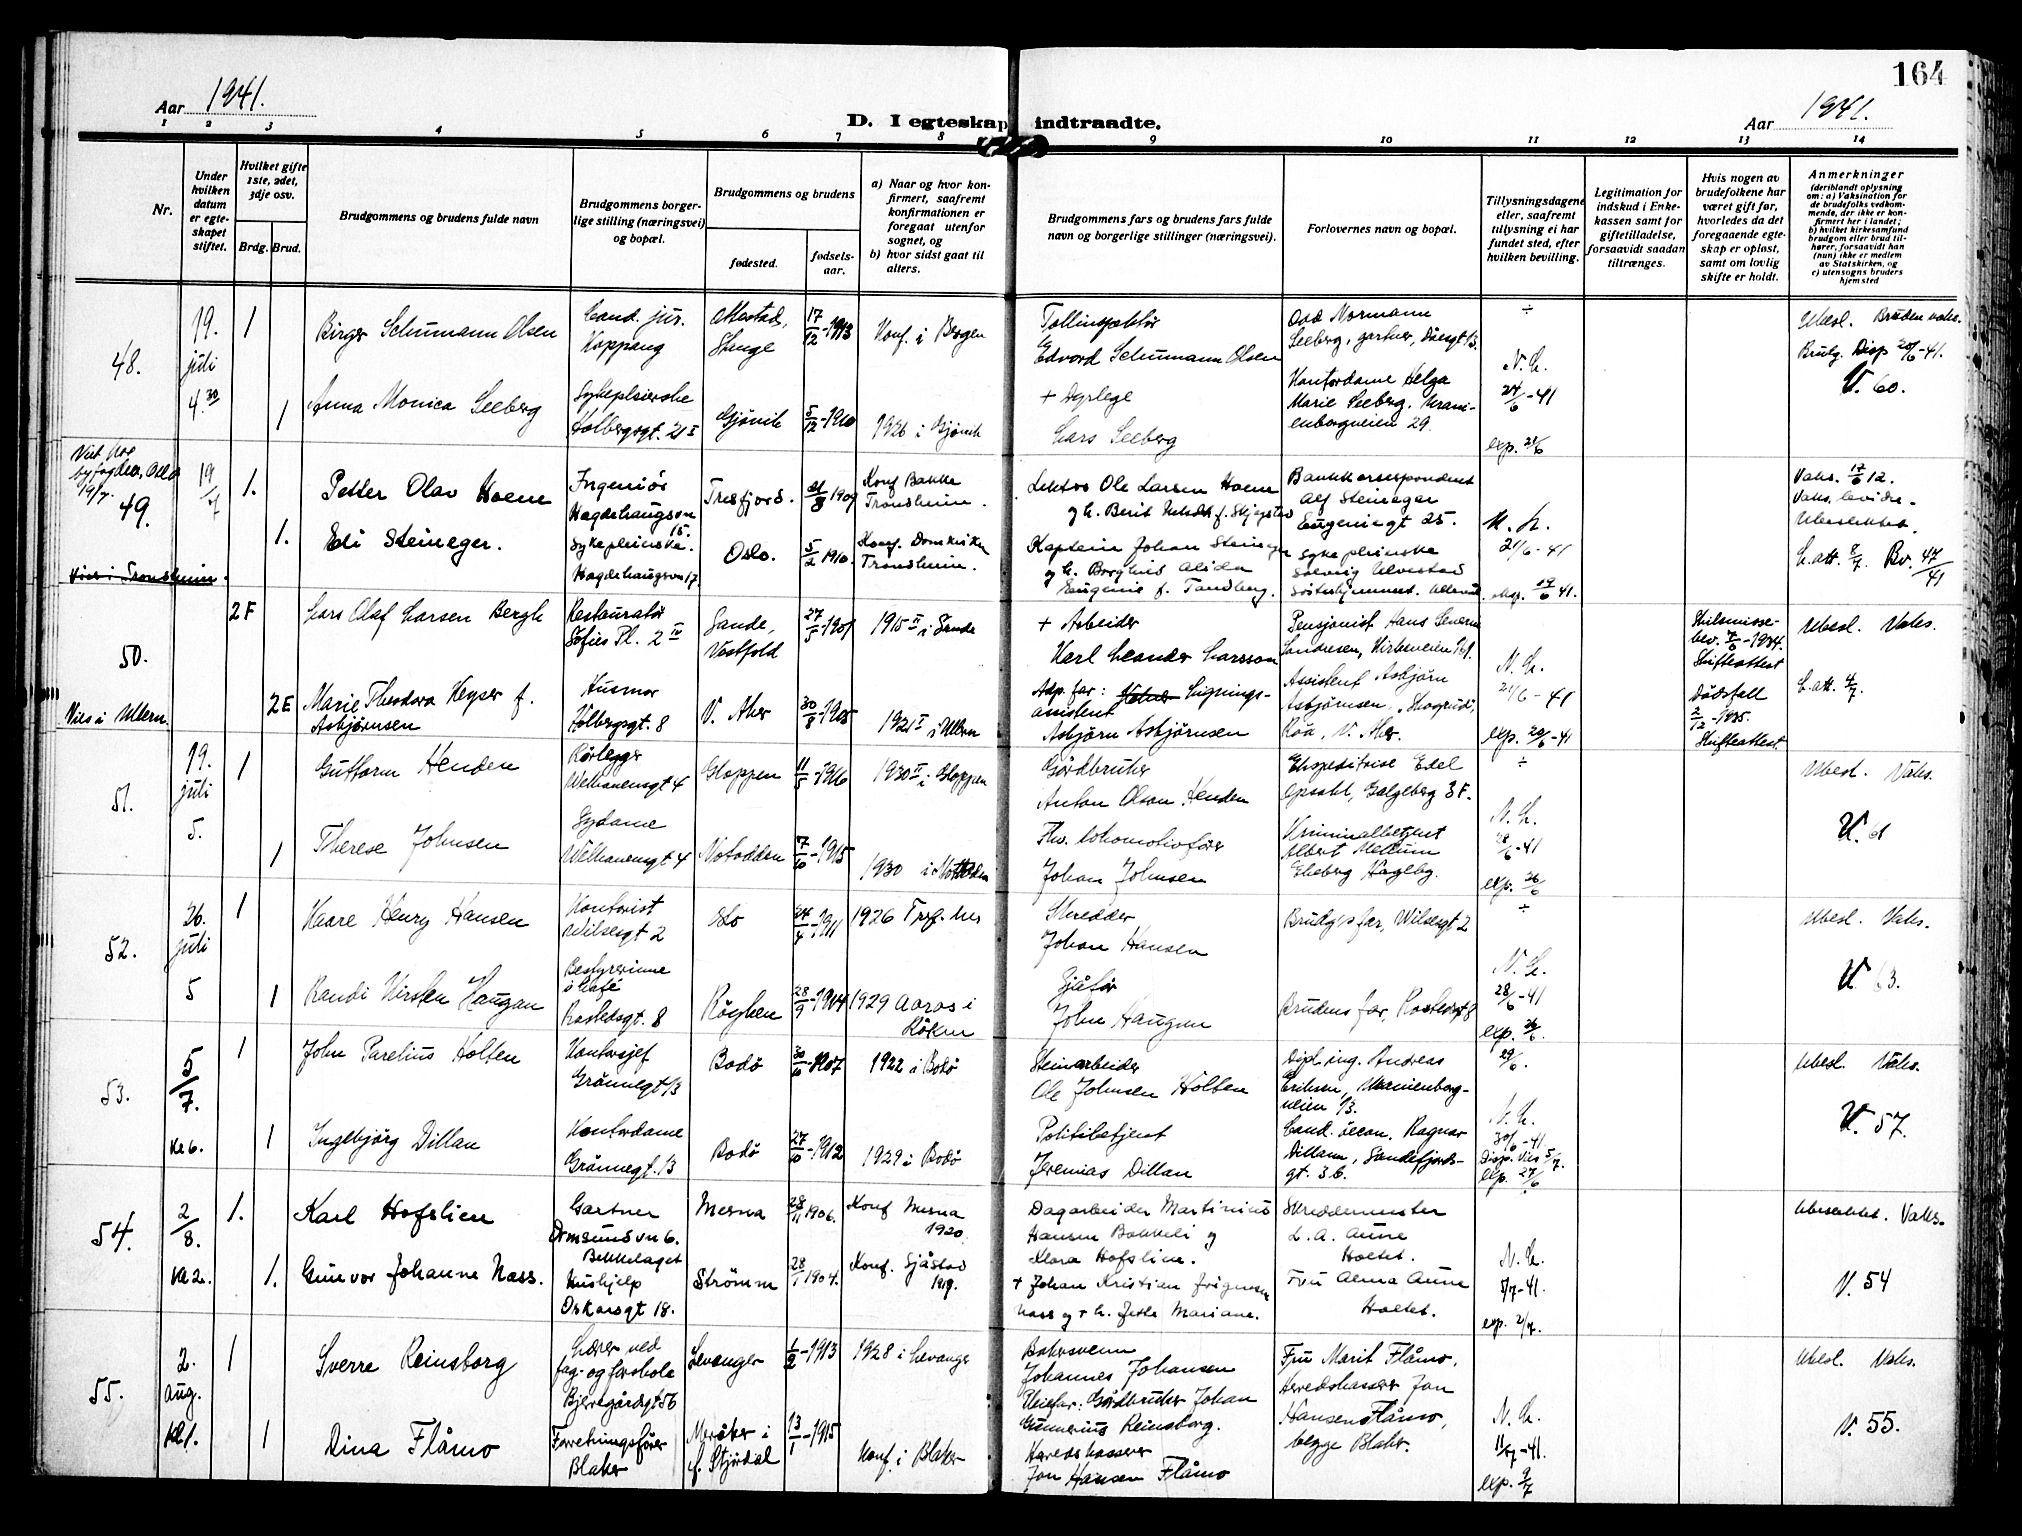 164
Aar 1941.
D. I egteskap indtraadte.
Aar 1941.
1 2 3 4 5 6 7 8 9 10 11 12 13 14
Nr.
Under hvilken datum er egteskapet stiftet.
Hvilket gifte 1ste, 2det, 3dje osv.
Brdg. Brud.
Brudgommens og brudens fulde navn
Brudgommens borgerlige stilling (næringsvei) og bopæl.
Brudgommens og brudens
fødested.
fødselsaar.
a) Naar og hvor konfirmert, saafremt konfirmationen er foregaat utenfor sognet, og
b) hvor sidst gaat til alters.
Brudgommens fars og brudens fars fulde navn og borgerlige stillinger (næringsvei).
Forlovernes navn og bopæl.
Tillysningsdagene eller, saafremt tillysning ei har fundet sted, efter hvilken bevilling.
Legitimation for indskud i Enkekassen samt for giftetilladelse, forsaavidt saadan tiltrænges.
Hvis nogen av brudefolkene har været gift før, hvorledes da det foregaaende egteskap er opløst, samt om lovlig skifte er holdt.
Anmerkninger
(deriblandt oplysning om: a) Vaksination for de brudefolks vedkommende, der ikke er konfirmert her i landet; b) hvilket kirkesamfund brudgom eller brud tilhører, forsaavidt han (hun) ikke er medlem av Statskirken, og c) utensogns bruders hjemsted
48.
19. juli 4.30
1
Birger Schumann Olsen
Cand. jur.
Koppang
Ottestad, Stange
17/12-1913
Konf. i Bergen
Tollinspektör
Edvard Schumann Olsen
Odd Normann
Seeberg, gartner,
÷
Ubesl. Bruden vaks.
Brudg. Disp 20/6-41.
V. 60.
1
Anna Monica Seeberg
Sykepleierske
Holbergsgt. 21 II
Gjövik
5/12-1910
1926 i Gjövik
+ Dyrlege
Lars Seeberg
Kontordame Helga
Marie Seeberg. Uranienborgveien 29.
N. L.
24/6-41
exp. 21/6
Viet hos byfogden, Oslo 19/7.
49.
19/7
1.
Petter Olav Hoem
Ingeniör
Hegdehaugsvn 15.
Tresfjord.
21/8 1909
Konf Bakke
Trondheim.
Lektor Ole Larsen Hoem
Bankkorrespondent
Alf Steineger
Eugeniegt 25.
Vaks. 17/6 12.
Ubeslektet.
L. att. 8/7 Bv. 47/41
1.
Edi Steineger.
Sykepleierske.
Hegdehaugsvn 17
Oslo.
5/2 1910.
Konf. Domkirken
Trondheim.
Kaptein Johan Steineger
og h. Borghild Alida
Eugenie f. Tandberg.
Sykepleierske
Solveig Ulvestad
Söstrehjemmet. Ullevål.
N. L.
21/6-41
exp. 19/6 41.
Vies i Trondheim.
50.
2F
Lars Olaf Larsen Bergh
Restauratör
Sofies Pl. 2 IV
Sande, Vestfold
27/5-1901
1915 II i Sande
+ Arbeider
Karl Leander Larsson
Pensjonist Hans Severin
Sandresen, Kirkeveien 161.
Skilsmissebev. 7/6-1934.
Skifteattest
Ubesl. Vaks.
L. att. 4/7.
Vies i Ullern.
2E
Marie Theodora Heyser f.
Asbjörnsen
Husmor
Holbergsgt. 8
V. Aker
30/8-1905
1921 II i Ullern
Adp. far: Ligningsassistent
Asbjörn Asbjörnsen
Assistent Asbjörn
Asbjörnsen, "Skogrud",
Röa, V. Aker.
N. L.
21/6-41
exp. 20/6-41
Dödsfall
2/12-1935.
Skifteattest
51.
19. juli 5.
1
Guttorm Henden
Rörlegger
Welhavensgt 4
Gloppen
11/5-1916
1930 II i Gloppen
Gårdbruker
Anton Olson Henden
Ekspeditrise Edel
Opsahl, Galgeberg 3F.
÷
Ubesl. Vaks.
V. 61
1
Therese Johnsen
Sydame
Welhavensgt 4
Notodden
7/10-1915
1930 i Notodden
Fhv. lokomotivförer
Johan Johnsen
Kriminalbetjent
Albert Mellum
Ekeberg Hageby.
N. L.
28/6-41
exp. 26/6
52.
26. juli 5
1
Kaare Henry Hansen
Kontorist
Wilsesgt 2
Oslo
24/4-1911
1926 Tref. her
Skredder
Johan Hansen
Brudg's far, Wilsesgt 2
÷
Ubesl. Vaks.
V. 63.
1
Randi Kirsten Haugan
Bestyrerinne
i kafé
Rostedsgt. 8
Röyken
28/9-1914
1929 Aaros i
Röken
Sjåför
John Haugan
Brudens far, Rostedsgt 8
N. L.
28/6-41
exp. 26/6.
53.
5/7.
Kl 6.
1
John Parelius Holten
Kontorsjef
Grönnegt 13
Bodö
30/10-1907
1922 i Bodö
Steinarbeider
Ole Johnsen Holten
Dipl. ing. Andreas
Eriksen, Uranienborgveien 13.
29/6.
Ubesl. Vaks.
V. 57.
1
Ingebjörg Dillan
Kontordame
Grönnegt. 13
Bodö
27/10-1912
1929 i Bodö
Politibetjent
Jeremias Dillan
Cand. öecon. Ragnar
Dillann, Sandefjordsgt. 3b.
N. L.
30/6-41
Disp. vies 5/7.
exp. 27/6.
54.
2/8.
Kl 2.
1.
Karl Hofslien
Gartner
Ormsundvn 6.
Bekkelaget
Mesna
28/11 1906.
Konf Mesna
1920
Dagarbeider Martinius
Hansen Bakkeli og
Klara Hofslien.
Skreddermester
L. A. Aune
Holtet.
Ubeslektet. Vaks.
V. 54
1.
Gunvor Johanne Næss.
Hushjelp
Oskarsgt 18.
Strömm
28/1 1904.
Konf. Sjåstad
1919.
+ Johan Kristian
Næss og + h. Mariane.
Fru Alma Aune
Holtet.
N. L.
5/7-41.
exp. 2/7.
55.
2. aug. kl 1.
1
Sverre Reinsborg
Lærer ved
fag- og forskole
Bjerregårdsgt 56
Levanger
1/2-1913
1928 i Levanger
Bakersvenn
Johannes Johansen
Pleiefar: Gårdbruker Johan
Gunnerius Reinsborg.
Fru Marit Flåmo,
Herredskasserer Jon
Hansen Flåmo,
begge Blaker.
Ubesl. Vaks.
V. 55.
1
Dina Flåmo
Forretningsförer
Blaker
Meråker i
f. Stjördal
13/1-1915
Konf. i Blaker
Herredskasserer
Jon Hansen Flåmo
N. L.
11/7-41.
exp. 9/7